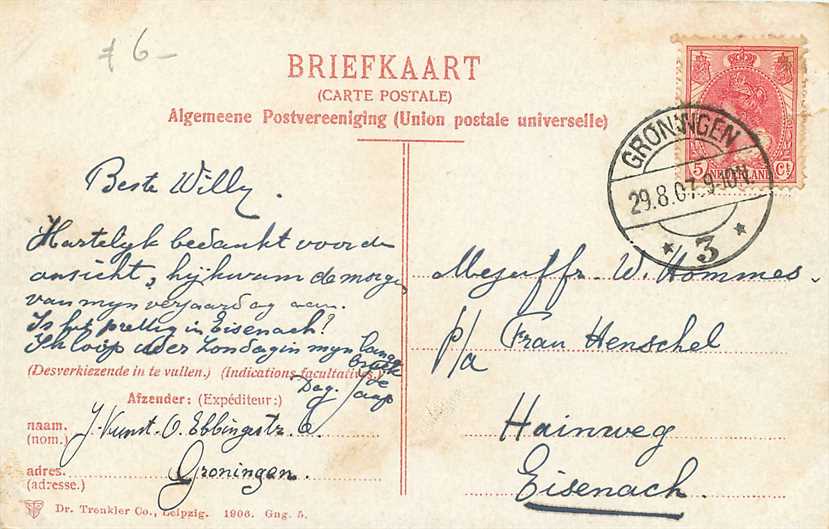 6-
BRIEFKAART
(CARTE POSTALE)
Algemeene Postvereeniging (Union postale universelle)
5 NEDERLAND Ct
GRONINGEN
29.8.07.9-10N.
* 3 *
Beste Willy.
Hartelyk bedankt voor de
ansicht, hy kwam de morgen
van myn verjaardag aan.
Is het prettig in Eisenach?
Ik loop weer Zondag in myn lange
broek
Dag. Jaap
(Desverkiezende in te vullen.) (Indications facultatives.)
Afzender: (Expéditeur:)
naam. (nom.) J. Kunst. O. Ebbingestr. 6.
adres. (adresse.) Groningen.
Dr. Trenkler Co., Leipzig. 1906. Gng. 5.
Mejuffr. W. Hommes.
p/a Frau Henschel
Hainweg
Eisenach.